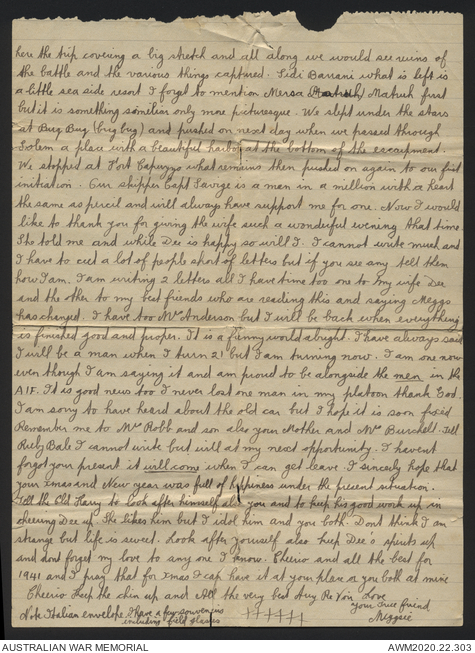 here the trip covering a big stretch and all along we would see ruins of
the battle and the various things captured. Sidi Barrani what is left is
a little sea side resort I forgot to mention Mersa Matruh first
but it is something similiar only more picturesque. We slept under the stars
at Bug Bug (big bug) and pushed on next day when we passed through
Solem a place with a beautiful harbor at the bottom of the escarpment.
We stopped at Fort Capuzzo what remains then pushed on again to our first
initiation. Our skipper Capt Savige is a man in a million with a heart
the same as percil and will always have support me for one. Now I would
like to thank you for giving the wife such a wonderful evening that time.
She told me and while Dee is happy so will I. I cannot write much and
I have to cut a lot of people short of letters but if you see any tell them
how I am. I am writing 2 letters all I have time too one to my wife Dee
and the other to my best friends who are reading this and saying Meggs
has changed. I have too Mrs Anderson but I will be back when everything
is finished good and proper. It is a funny world alright. I have always said
I will be a man when I turn 21 but I am turning now. I am one now
even though I am saying it and am proud to be alongside the men in the
AIF. It is good news too I never lost one man in my platoon thank God.
I am sorry to have heard about the old car but I hope it is soon fixed
Remember me to Mrs Robb and son also your Mother and Mrs Burchell. Tell
Ruby Bale I cannot write but will at my next opportunity. I havent
forgot your present it will come when I can get leave. I sincerly hope that
your Xmas and New year was full of happiness under the present situation.
Tell the Old Harry to look after himself also you and to keep his good work up in
cheering Dee up. She likes him but I idol him and you both. Dont think I am
strange but life is sweet. Look after yourself also keep Dee's spirits up
and dont forget my love to any one I know. Cheerio and all the best for
1941 and I pray that for Xmas I can have it at your place or you both at mine
Cheerio Keep the chin up and All the very best Au Re Voir Love
your True friend
Meggsie
Note Italian envelope I have a few souvenirs
including field glasses
+++++++
AUSTRALIAN WAR MEMORIAL
AWM2020.22.303